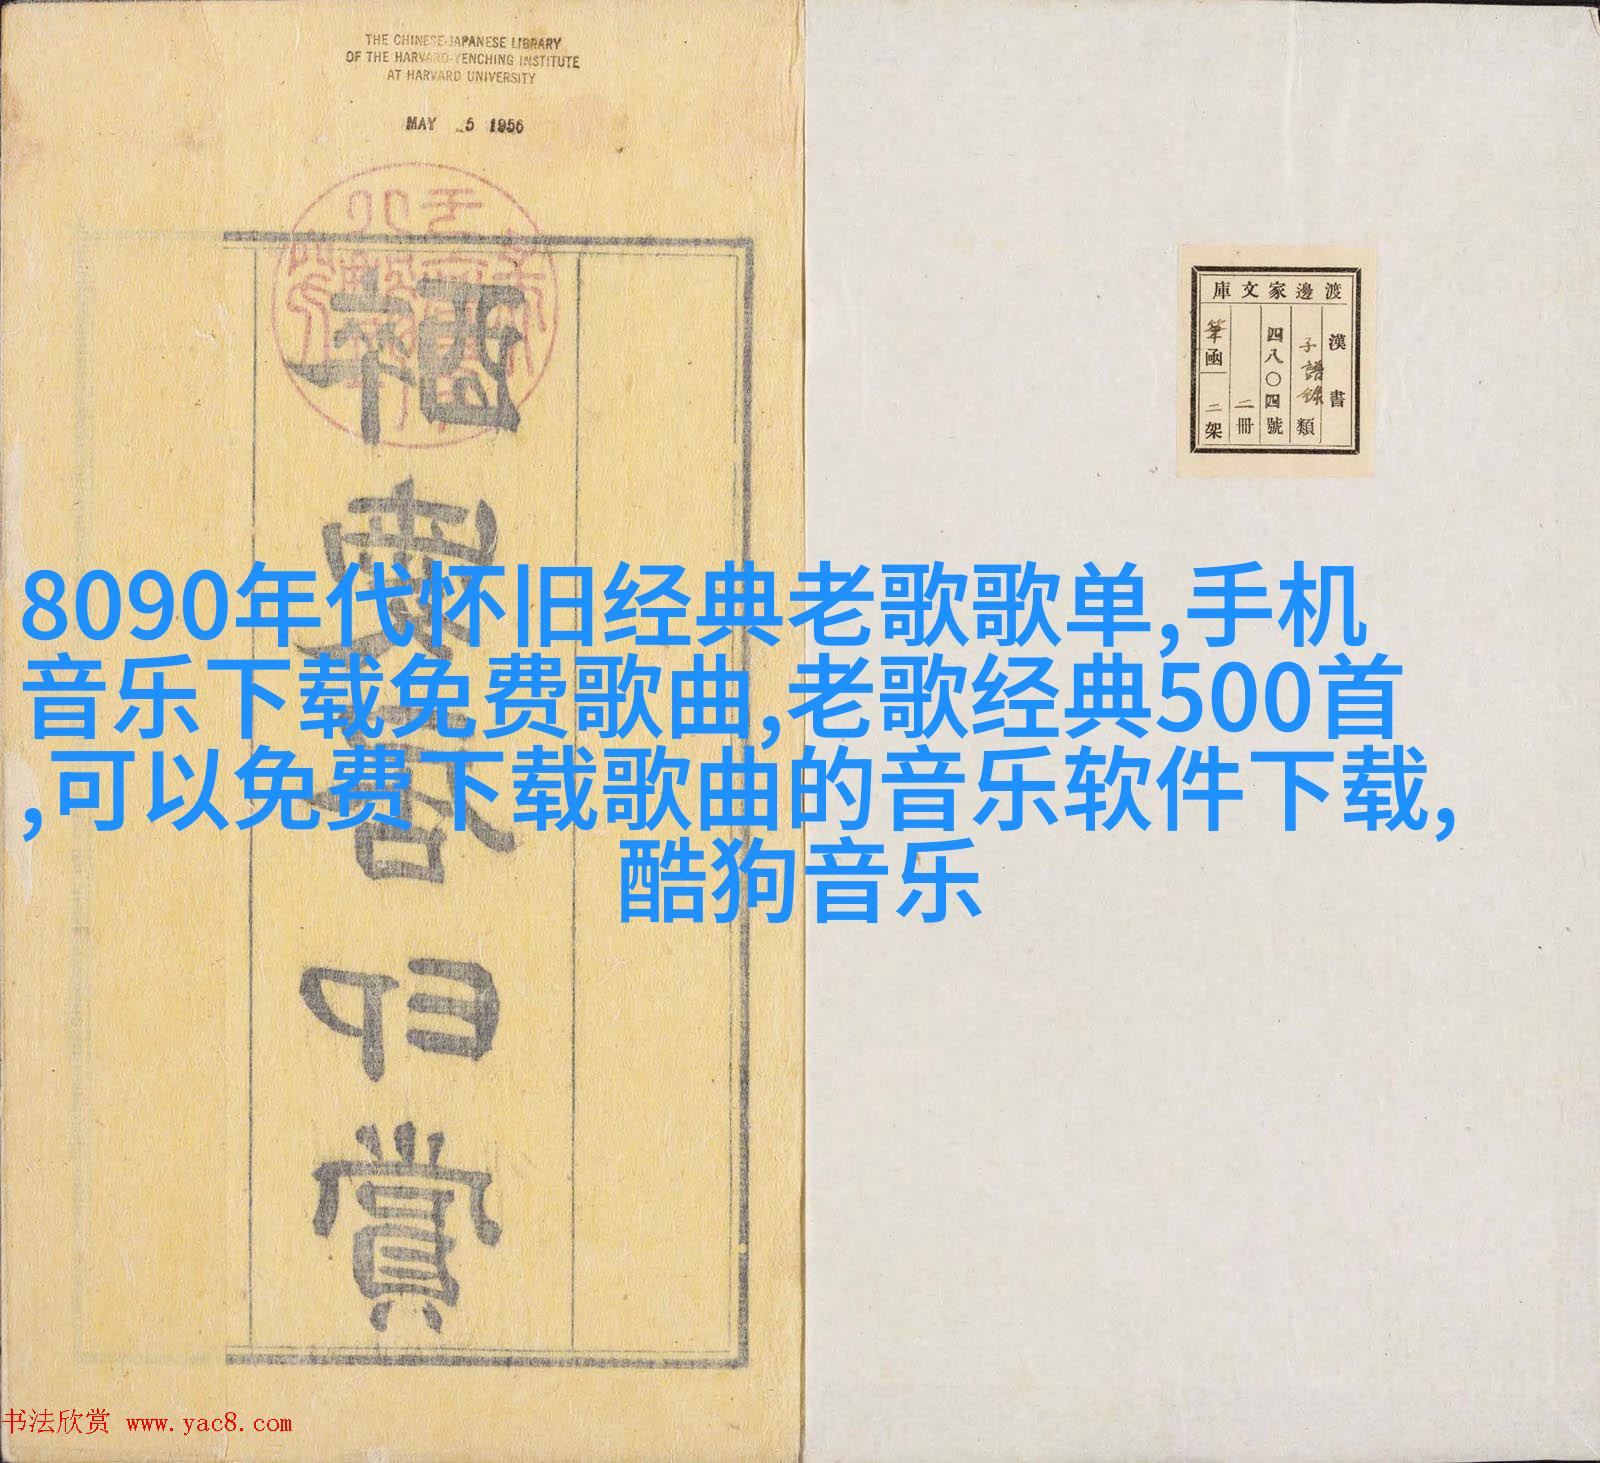 THE CHINESE-JAPANESE LIBRARY
OF THE HARVARD-YENCHING INSTITUTE
AT HARVARD UNIVERSITY
MAY 5 1956
渡邊家文庫
漢書
子譜錄類
四八〇四號
二冊
筆函二架
8090年代怀旧经典老歌歌单,手机
音乐下载免费歌曲,老歌经典500首
,可以免费下载歌曲的音乐软件下载,
酷狗音乐
书法欣赏 www.yac8.com